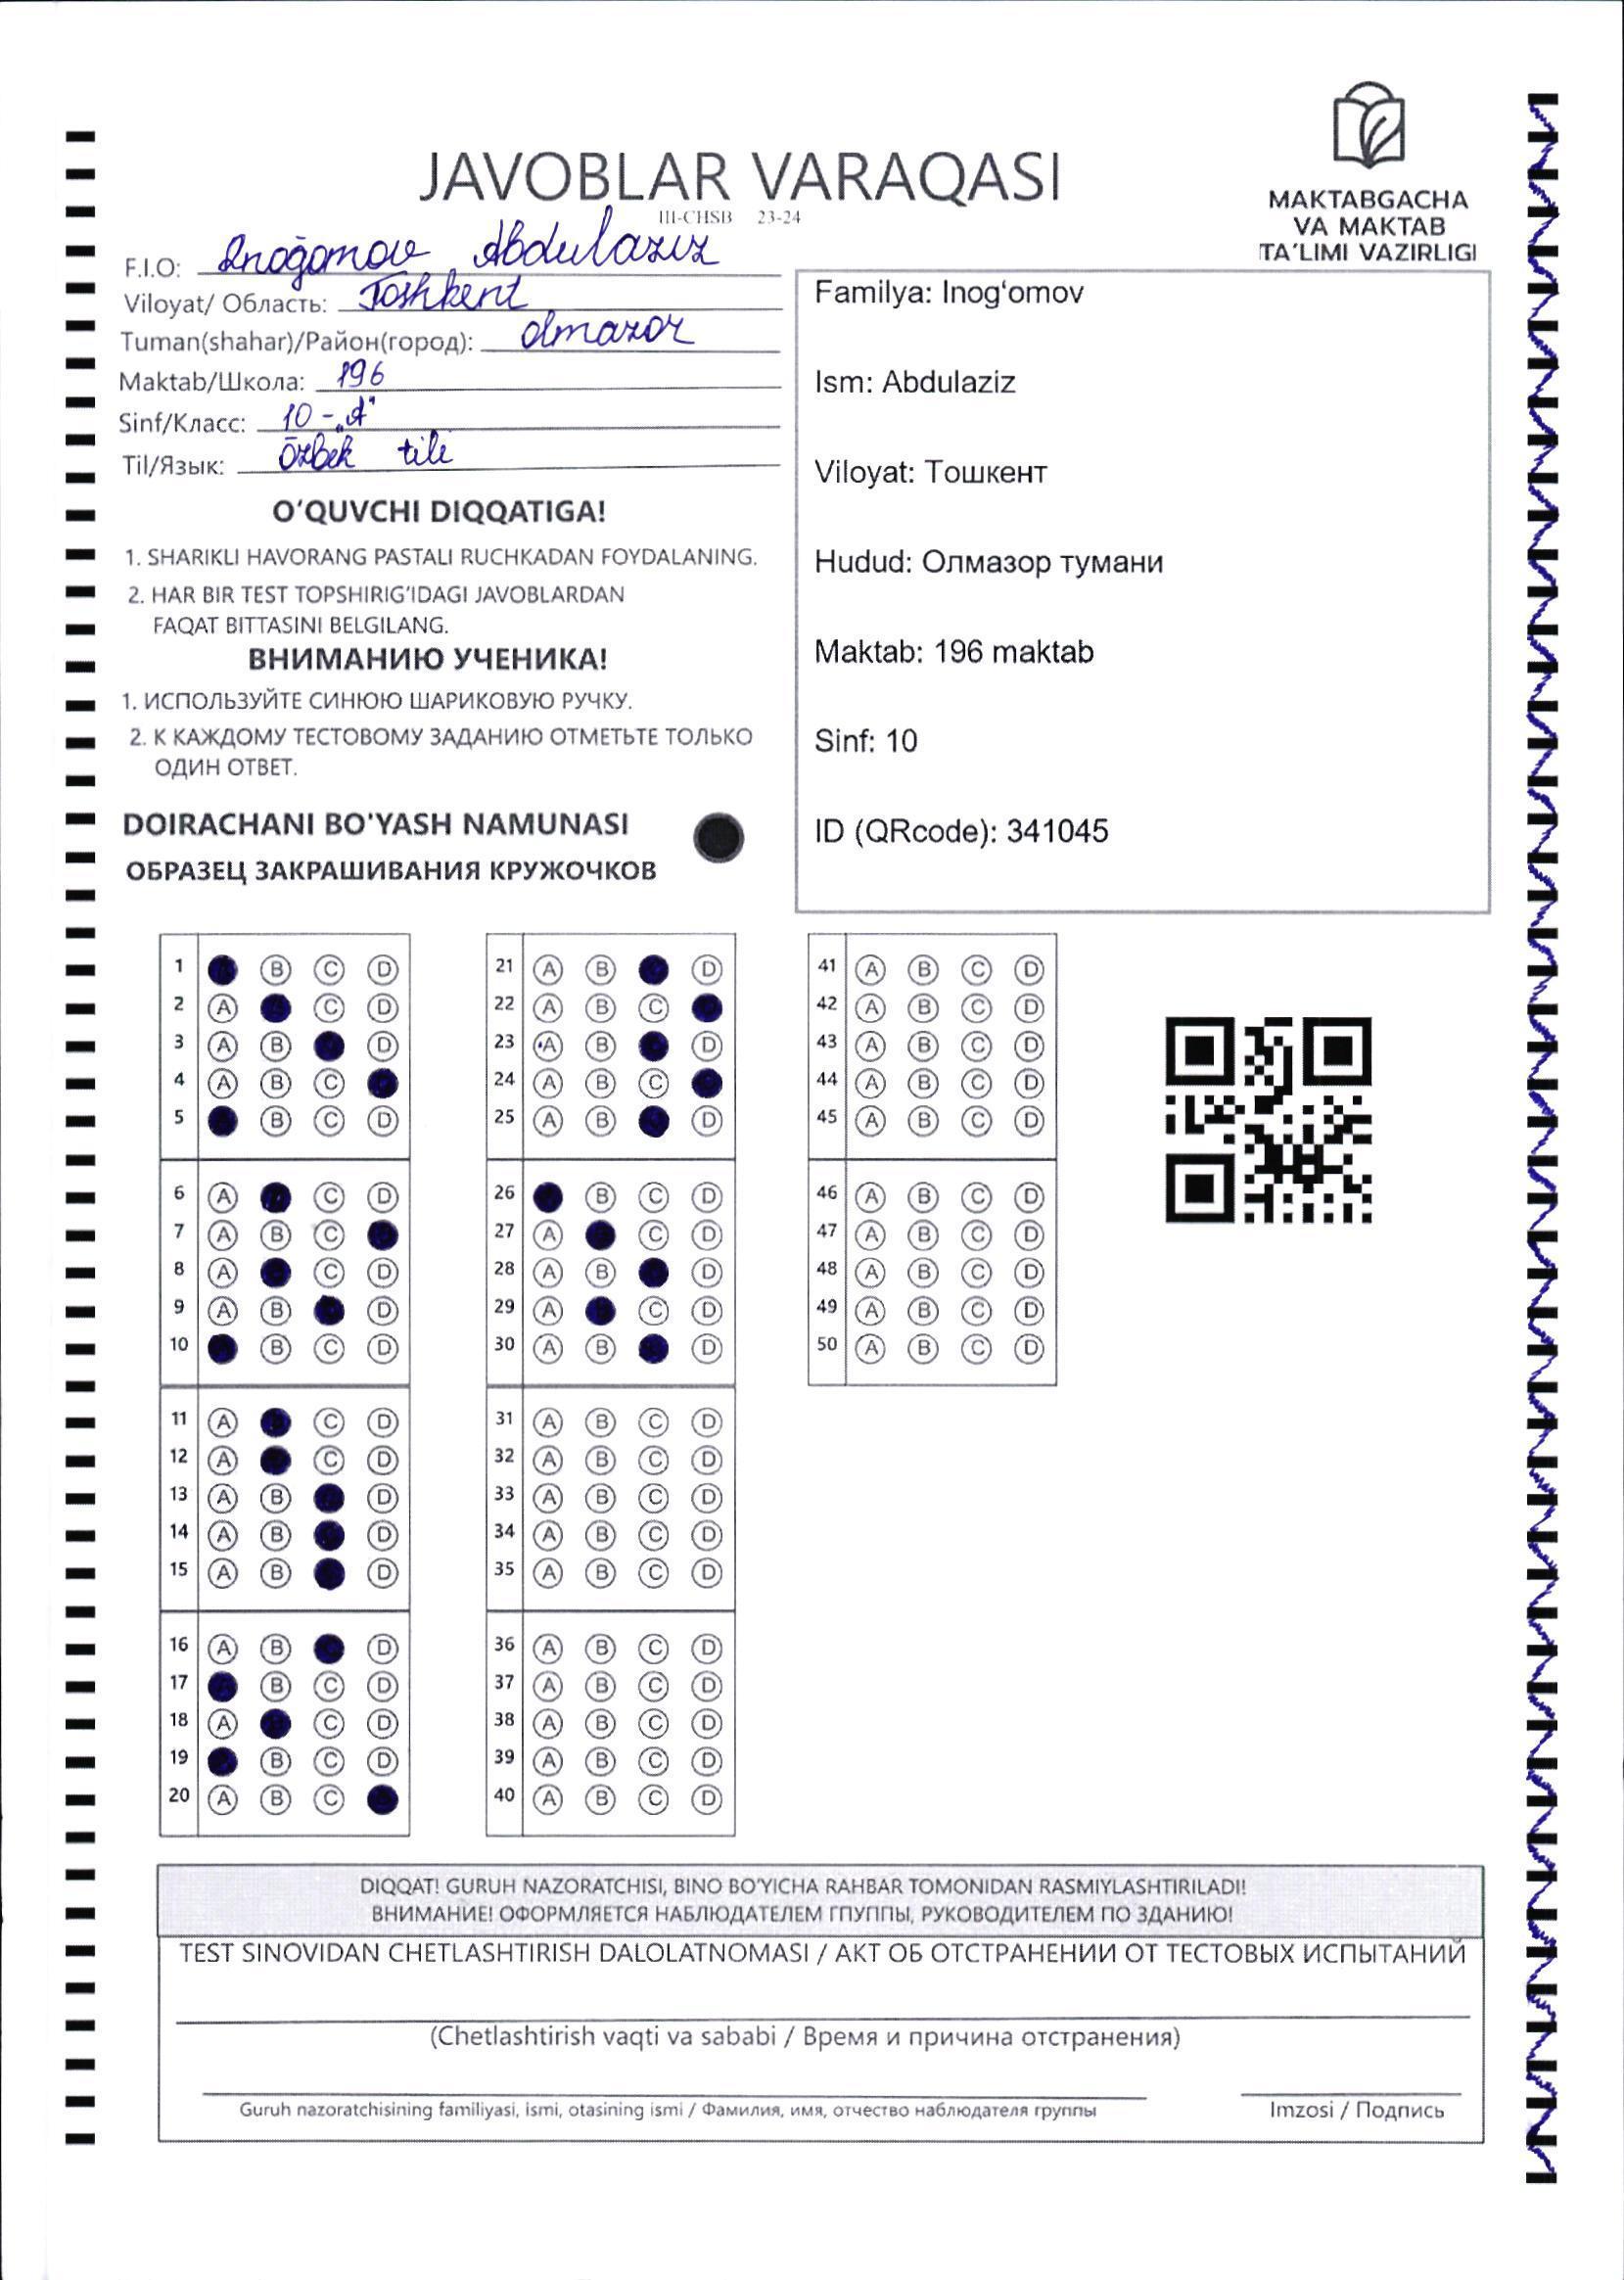 JAVOBLAR VARAQASI
III-CHSB 23-24
MAKTABGACHA
VA MAKTAB
TA'LIMI VAZIRLIGI
F.I.O: Inoğomov Abdulaziz
Viloyat/ Область: Toshkent
Tuman(shahar)/Район(город): Olmazor
Maktab/Школа: 196
Sinf/Класс: 10-„A"
Til/Язык: Ōzbek tili
Familya: Inog‘omov
Ism: Abdulaziz
Viloyat: Тошкент
Hudud: Олмазор тумани
Maktab: 196 maktab
Sinf: 10
ID (QRcode): 341045
O‘QUVCHI DIQQATIGA!
1. SHARIKLI HAVORANG PASTALI RUCHKADAN FOYDALANING.
2. HAR BIR TEST TOPSHIRIG'IDAGI JAVOBLARDAN
FAQAT BITTASINI BELGILANG.
ВНИМАНИЮ УЧЕНИКА!
1. ИСПОЛЬЗУЙТЕ СИНЮЮ ШАРИКОВУЮ РУЧКУ.
2. К КАЖДОМУ ТЕСТОВОМУ ЗАДАНИЮ ОТМЕТЬТЕ ТОЛЬКО
ОДИН ОТВЕТ.
DOIRACHANI BO'YASH NAMUNASI
ОБРАЗЕЦ ЗАКРАШИВАНИЯ КРУЖОЧКОВ
1 B C D
2 A C D
3 A B D
4 A B C
5 B C D
6 A C D
7 A B C
8 A C D
9 A B D
10 B C D
11 A C D
12 A C D
13 A B D
14 A B D
15 A B D
16 A B D
17 B C D
18 A C D
19 B C D
20 A B C
21 A B D
22 A B C
23 A B D
24 A B C
25 A B D
26 B C D
27 A C D
28 A B D
29 A C D
30 A B D
31 A B C D
32 A B C D
33 A B C D
34 A B C D
35 A B C D
36 A B C D
37 A B C D
38 A B C D
39 A B C D
40 A B C D
41 A B C D
42 A B C D
43 A B C D
44 A B C D
45 A B C D
46 A B C D
47 A B C D
48 A B C D
49 A B C D
50 A B C D
DIQQAT! GURUH NAZORATCHISI, BINO BO'YICHA RAHBAR TOMONIDAN RASMIYLASHTIRILADI!
ВНИМАНИЕ! ОФОРМЛЯЕТСЯ НАБЛЮДАТЕЛЕМ ГПУППЫ, РУКОВОДИТЕЛЕМ ПО ЗДАНИЮ!
TEST SINOVIDAN CHETLASHTIRISH DALOLATNOMASI / АКТ ОБ ОТСТРАНЕНИИ ОТ ТЕСТОВЫХ ИСПЫТАНИЙ
(Chetlashtirish vaqti va sababi / Время и причина отстранения)
Guruh nazoratchisining familiyasi, ismi, otasining ismi / Фамилия, имя, отчество наблюдателя группы
Imzosi / Подпись